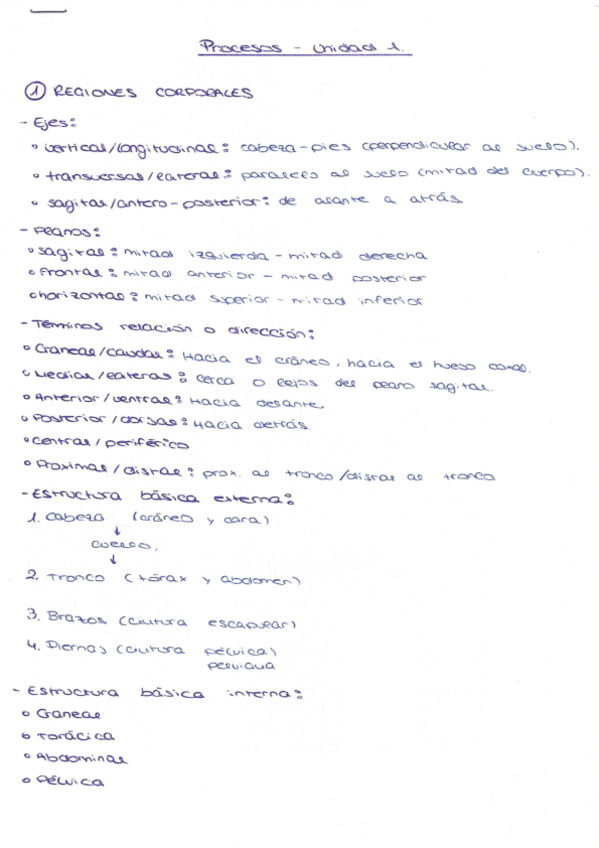 Procesos - Unidad 1.
① REGIONES CORPORALES
- Ejes:
• vertical/longitudinal: cabeza-pies (perpendicular al suelo).
• transversal/lateral: paralelo al suelo (mitad del cuerpo).
• sagital/antero-posterior: de alante a atrás
- Planos:
• sagital: mitad izquierda - mitad derecha
• frontal: mitad anterior - mitad posterior
• horizontal: mitad superior - mitad inferior
- Términos relación o dirección:
• Craneal/caudal: Hacia el cráneo, hacia el hueso coxal.
• Medial/lateral: cerca o lejos del plano sagital.
• Anterior/ventral: Hacia delante
• Posterior/dorsal: Hacia detrás.
• Central/periférico
• Proximal/distal: prox. al tronco/distal al tronco
- Estructura básica externa:
1. Cabeza (cráneo y cara)
↓
cuello.
↓
2. Tronco (tórax y abdomen)
3. Brazos (cintura escapular)
4. Piernas (cintura pélvica)
pelviana
- Estructura básica interna:
• Craneal
• Torácica
• Abdominal
• Pélvica